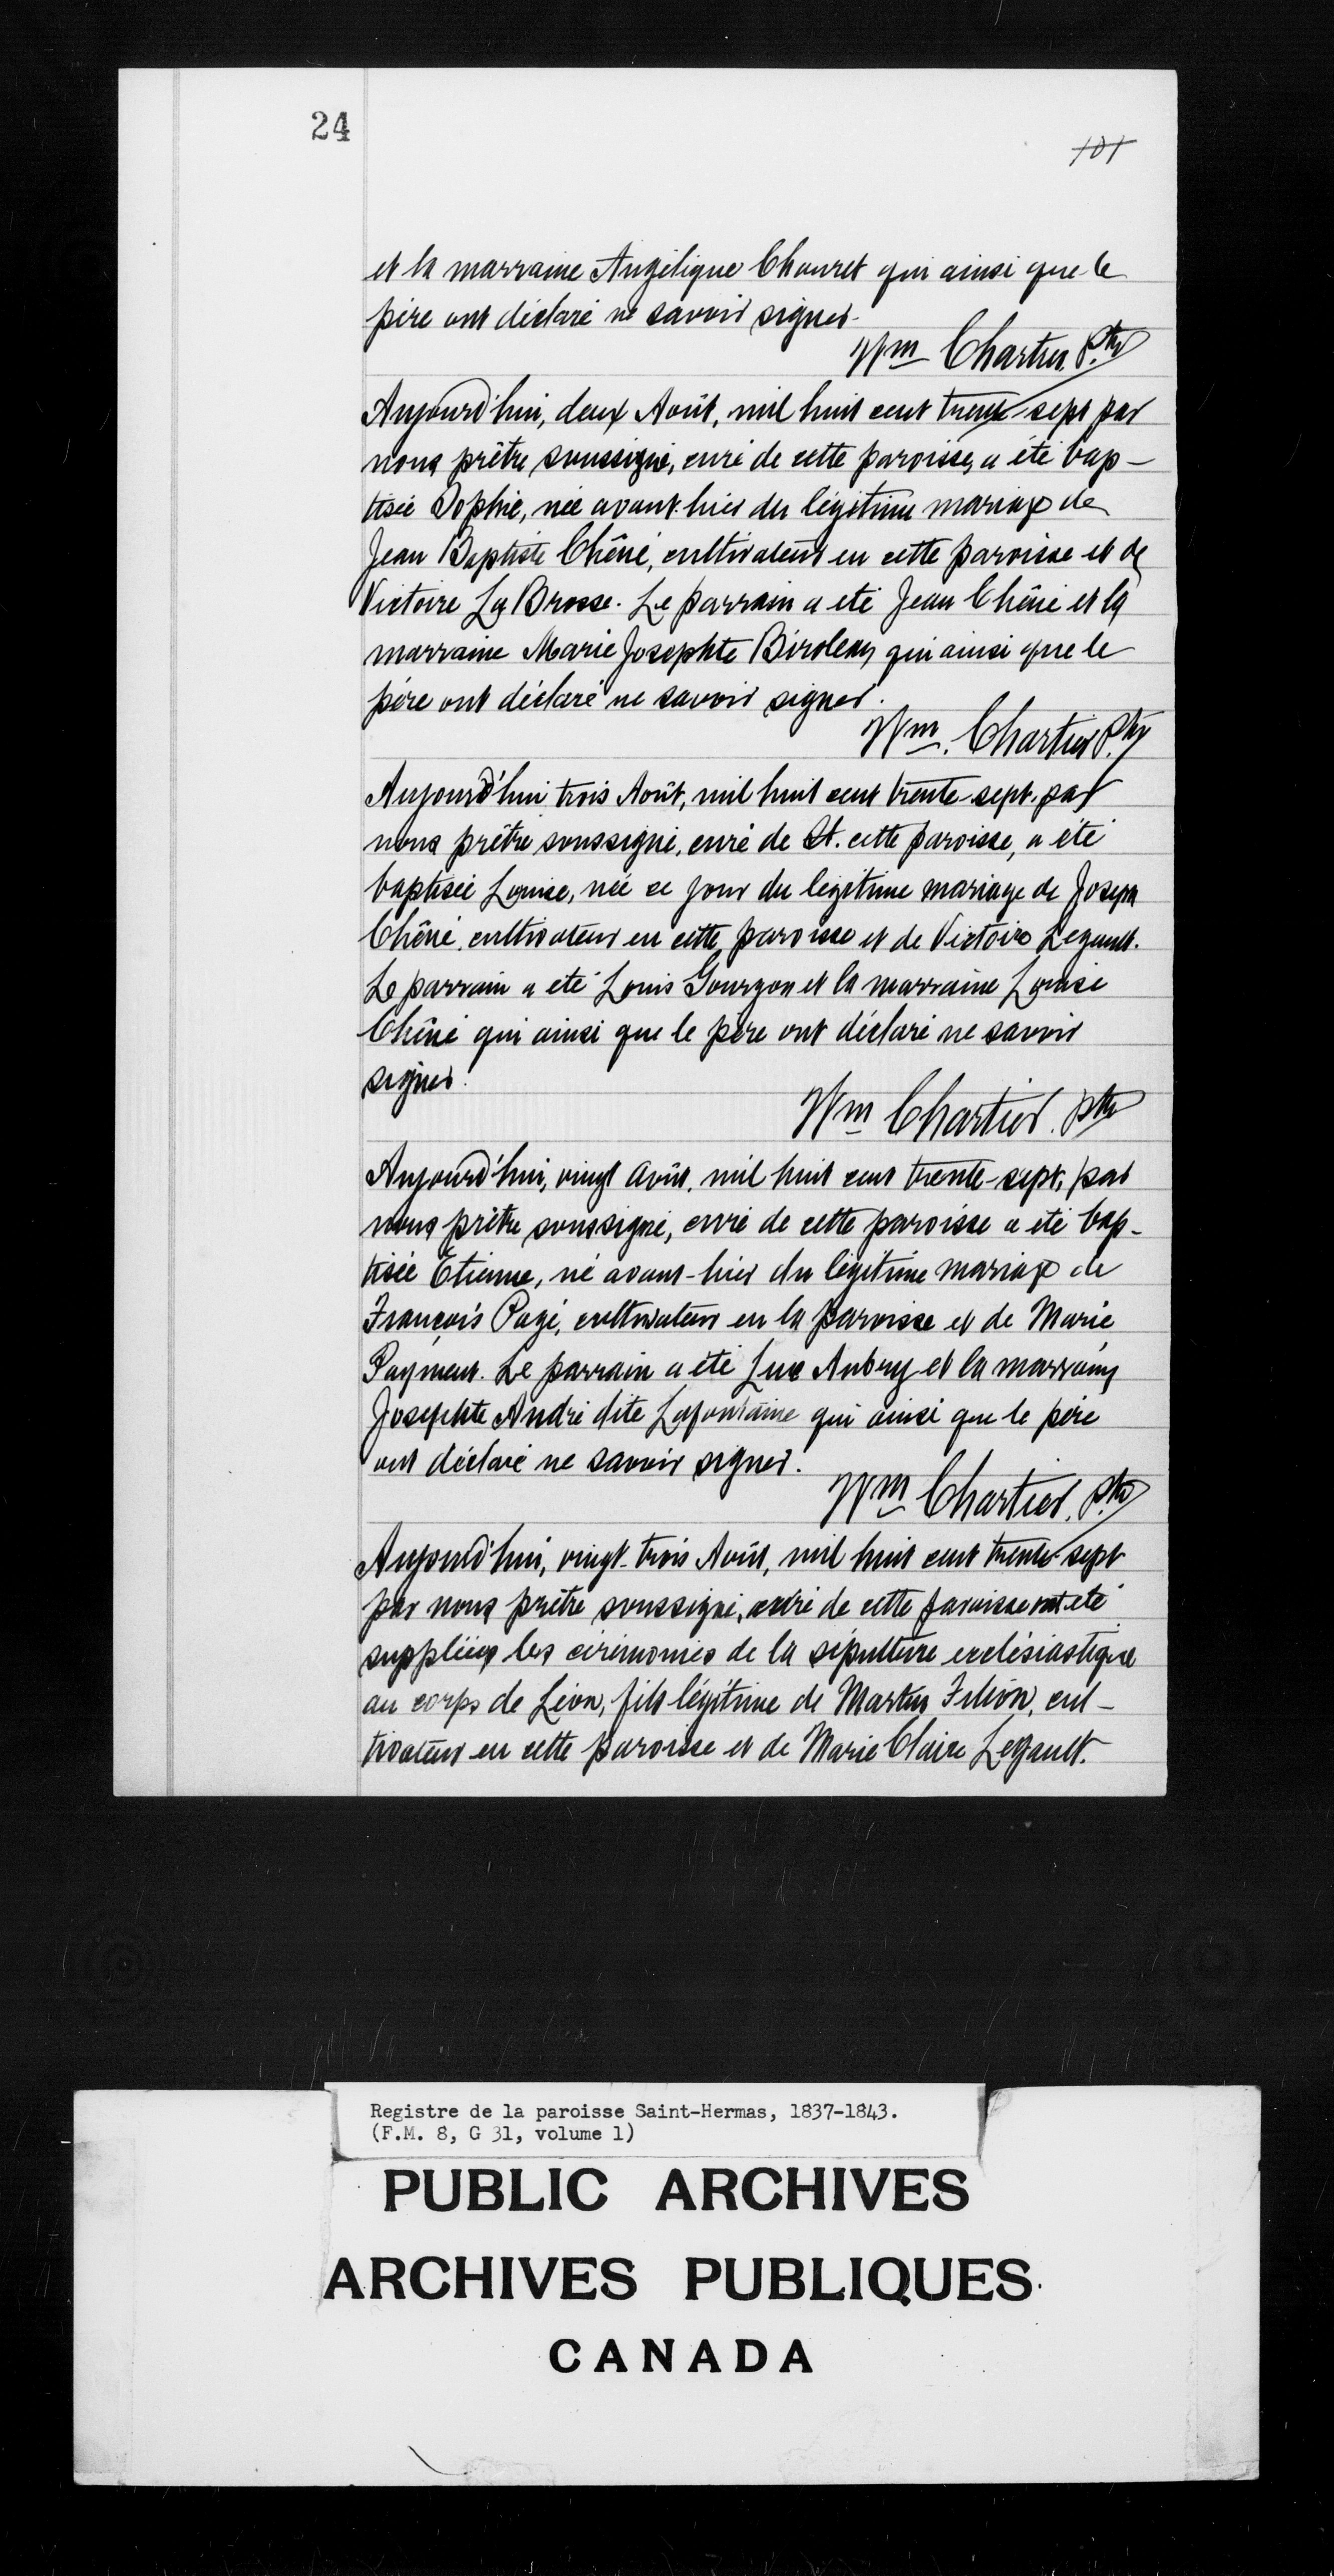 24
101
et la marraine Angélique Chouret qui ainsi que le
père ont déclaré ne savoir signer.
Wm Chartier Ptre
Aujourd'hui, deux Août, mil huit cent trente-sept par
nous prêtre soussigné, curé de cette paroisse, a été bap-
tisée Sophie, née avant-hier du légitime mariage de
Jean Baptiste Chêné, cultivateur en cette paroisse et de
Victoire La Brosse. Le parrain a été Jean Chêné et la
marraine Marie Josephte Biroleau qui ainsi que le
père ont déclaré ne savoir signer.
Wm. Chartier Ptre
Aujourd'hui trois Août, mil huit cent trente-sept, par
nous prêtre soussigné, curé de St. cette paroisse, a été
baptisée Louise, née ce jour du légitime mariage de Joseph
Chêné, cultivateur en cette paroisse et de Victoire Legault.
Le parrain a été Louis Gourgon et la marraine Louise
Chêné qui ainsi que le père ont déclaré ne savoir
signer.
Wm Chartier. ptre
Aujourd'hui, vingt août, mil huit cent trente-sept, par
nous prêtre soussigné, curé de cette paroisse a été bap-
tisée Etienne, né avant-hier du légitime mariage de
François Pagé, cultivateur en la paroisse et de Marie
Payment. Le parrain a été Luc Aubry et la marraine
Josephte André dite Lafontaine qui ainsi que le père
ont déclaré ne savoir signer.
Wm Chartier. Ptre
Aujourd'hui, vingt-trois Août, mil huit cent trente-sept
par nous prêtre soussigné, curé de cette paroisse ont été
suppléées les cérémonies de la sépulture ecclésiastique
au corps de Léon, fils légitime de Martin Filion, cul-
tivateur en cette paroisse et de Marie Claire Legault.
Registre de la paroisse Saint-Hermas, 1837-1843.
(F.M. 8, G 31, volume 1)
PUBLIC ARCHIVES
ARCHIVES PUBLIQUES
CANADA